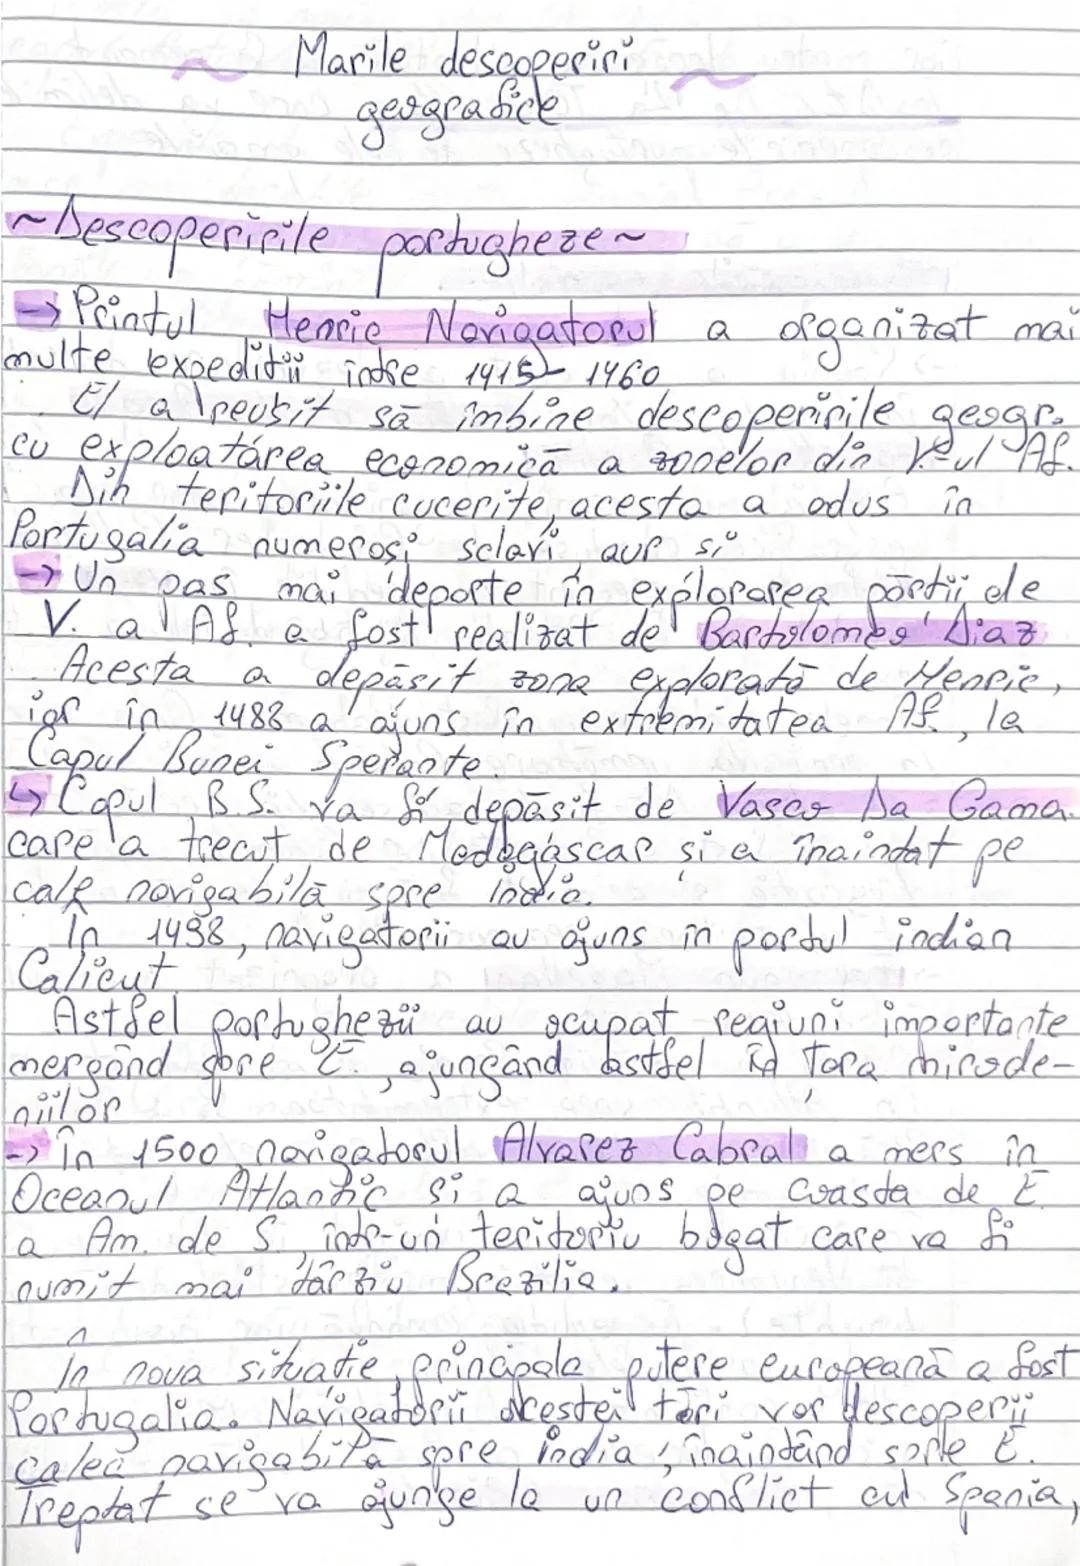 Marile descoperiri
geografice
~Descoperirile portugheze~
→ Prințul Henric Navigatorul a organizat mai
multe expediții între 1415-1460
El a reușit să îmbine descoperirile geogr.
cu exploatarea economică a zonelor din V-ul Af.
Din teritoriile cucerite, acesta a adus în
Portugalia numeroși sclavi, aur și
→ Un pas mai departe în explorarea părții de
V. a Af. a fost realizat de Bartolomeo Diaz
Acesta a depășit zona explorată de Henric,
iar în 1488 a ajuns în extremitatea Af., la
Capul Bunei Speranțe.
↳ Capul B.S. va fi depășit de Vasco Da Gama.
care a trecut de Madagascar și a înaintat pe
cale navigabilă spre India.
În 1498, navigatorii au ajuns în portul indian
Calicut
Astfel portughezii au ocupat regiuni importante
mergând spre E., ajungând astfel în țara mirode-
niilor
→ În 1500 navigatorul Alvarez Cabral a mers în
Oceanul Atlantic și a ajuns pe coasta de E
a Am. de S., într-un teritoriu bogat care va fi
numit mai târziu Brazilia.
În noua situație, principala putere europeană a fost
Portugalia. Navigatorii acestei țări vor descoperii
calea navigabilă spre India, înaintând spre E.
Treptat se va ajunge la un conflict cu Spania,